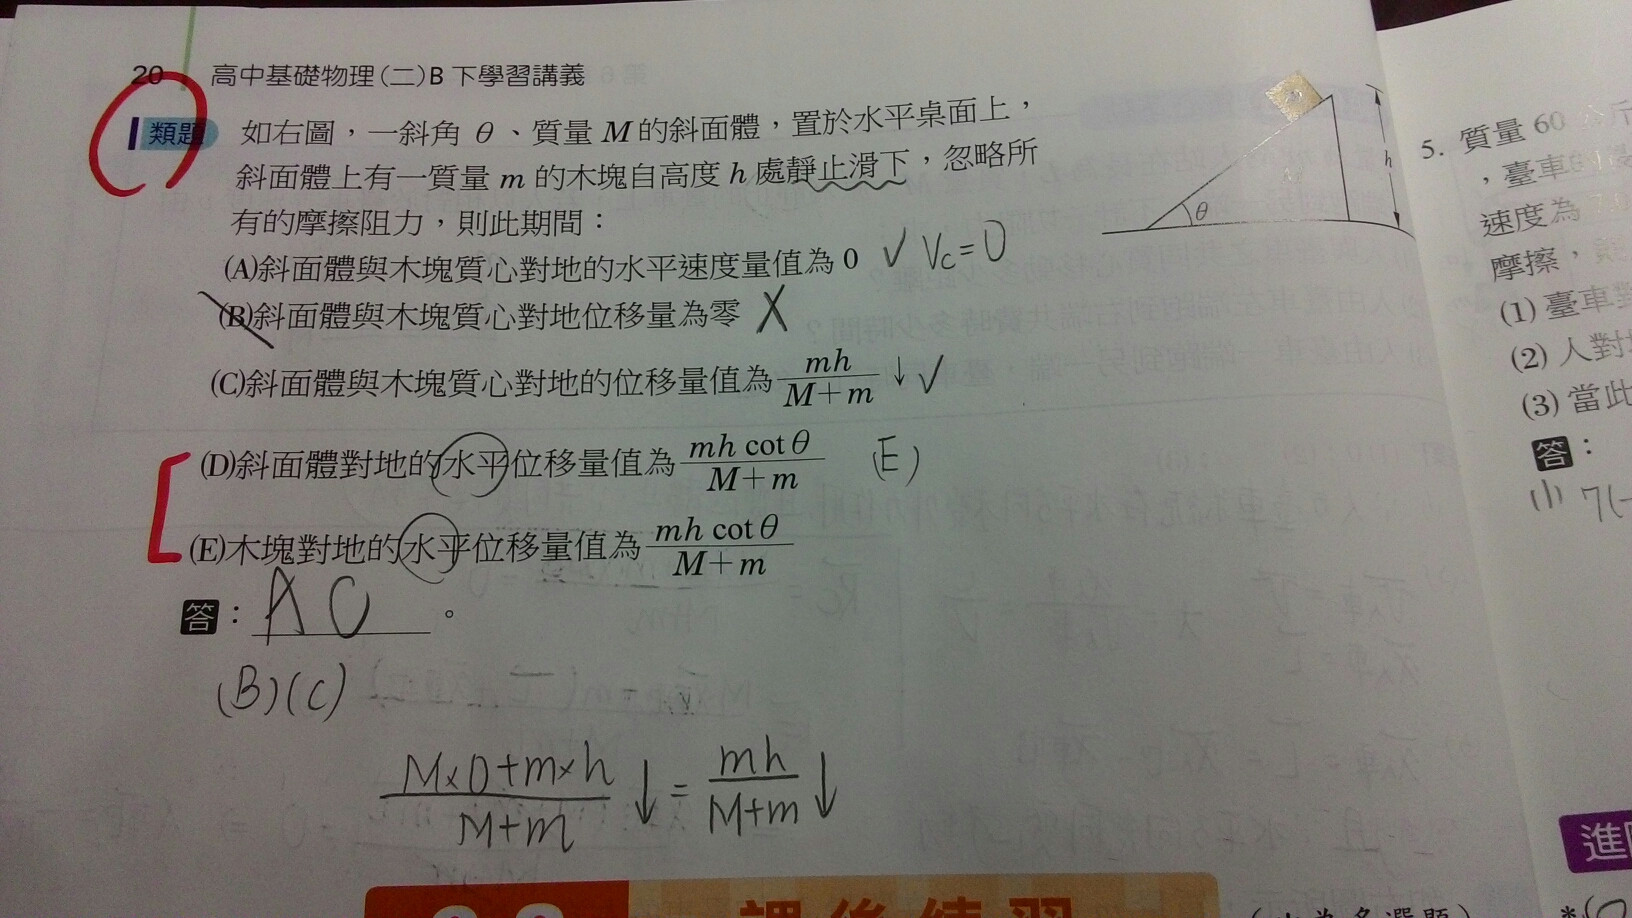 20 高中基礎物理(二)B下學習講義
類題 如右圖,一斜角 θ、質量 M 的斜面體,置於水平桌面上,
斜面體上有一質量 m 的木塊自高度 h 處靜止滑下,忽略所
有的摩擦阻力,則此期間:
(A)斜面體與木塊質心對地的水平速度量值為 0 ✓ Vc=0
(B)斜面體與木塊質心對地位移量為零 X
(C)斜面體與木塊質心對地的位移量值為 mh/(M+m) ↓ ✓
(D)斜面體對地的水平位移量值為 mh cot θ/(M+m) (E)
(E)木塊對地的水平位移量值為 mh cot θ/(M+m)
答: A C 。
(B)(C)
(M×0+m×h)/(M+m) ↓ = mh/(M+m) ↓
h
θ
5. 質量 60
,臺車
速度為
摩擦,
(1) 臺車對
(2) 人對
(3) 當此
答:
(1)
課後練習
進